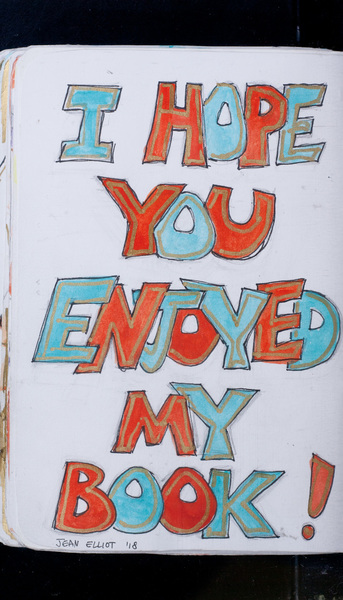 I HOPE
YOU
ENJOYED
MY
BOOK!
JEAN ELLIOT '18